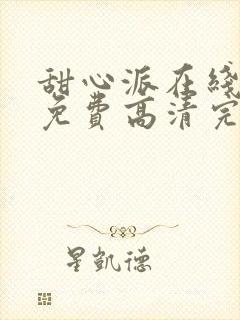 甜心派在线
免费高清完
星凯德